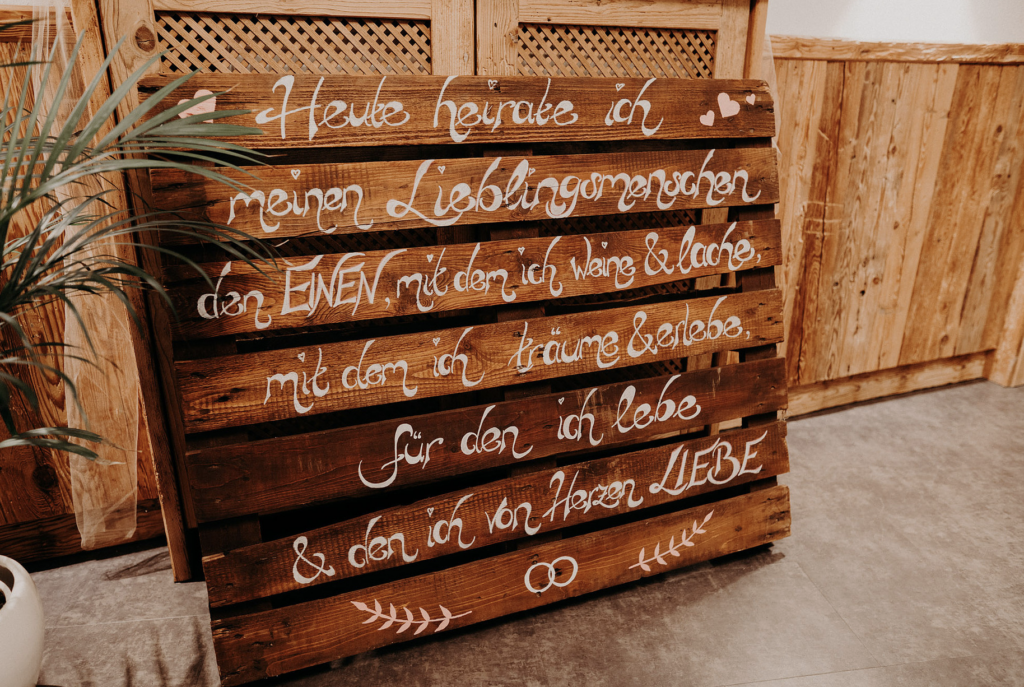 Heute heirate ich
meinen Lieblingsmenschen
den EINEN, mit dem ich weine & lache,
mit dem ich träume & erlebe,
für den ich lebe
& den ich von Herzen LIEBE